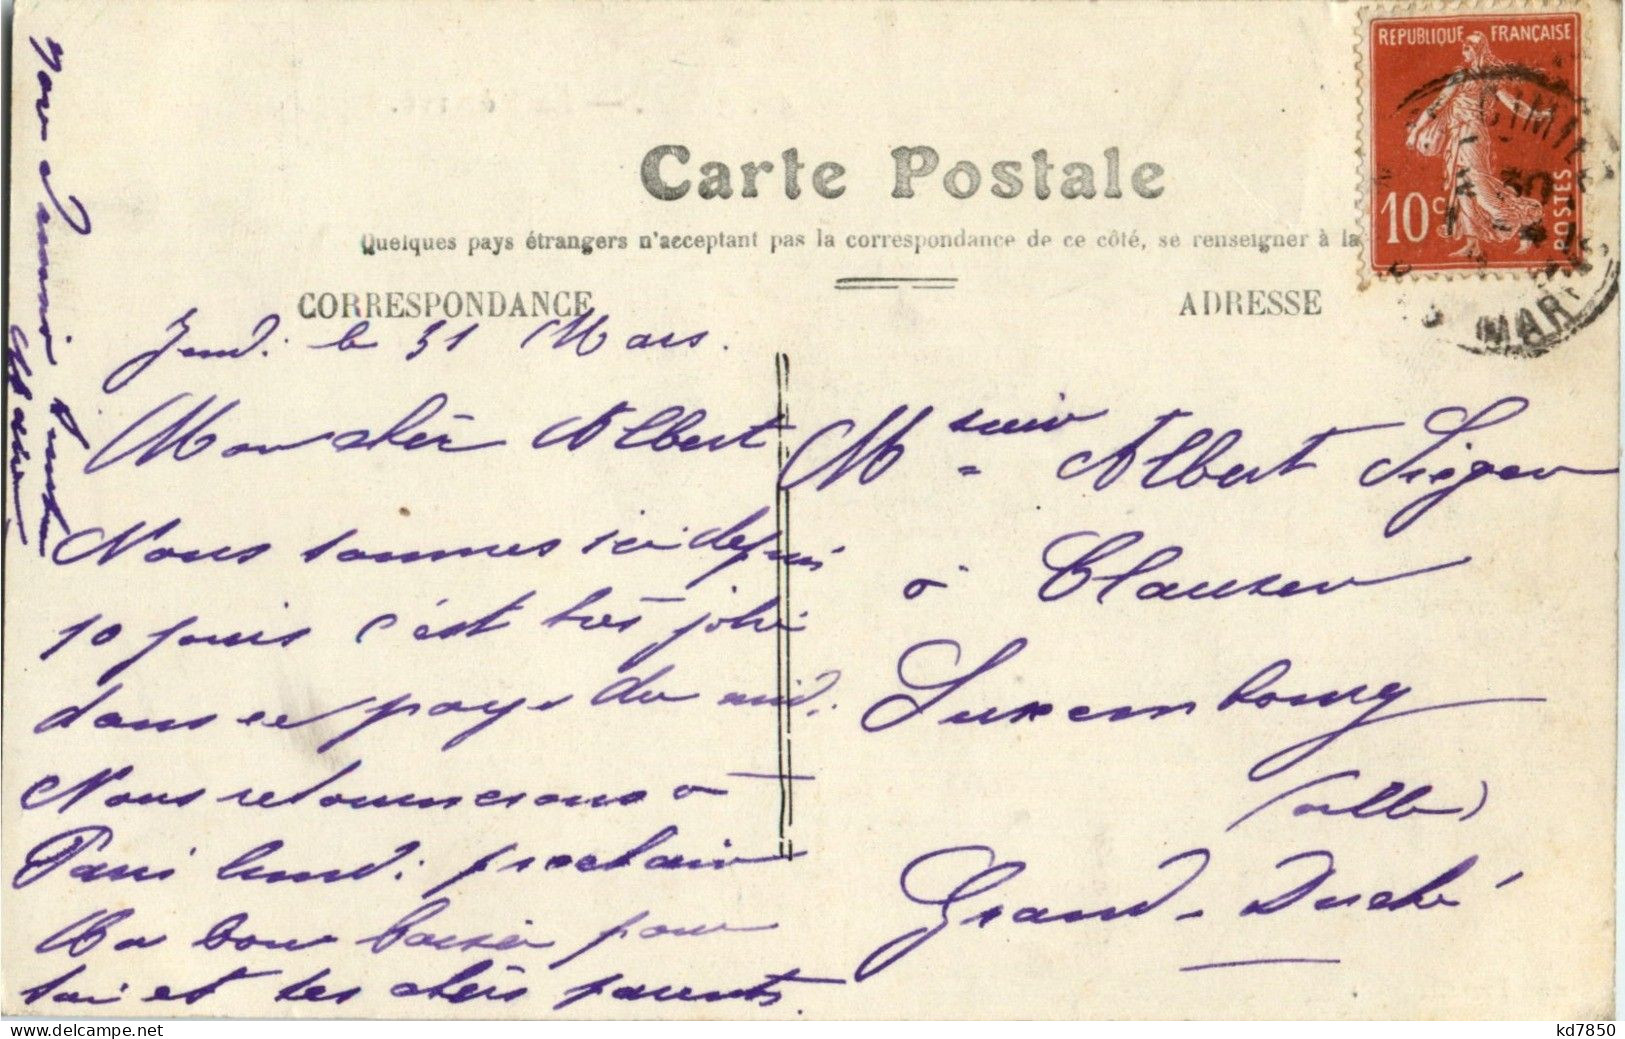 Carte Postale
Quelques pays étrangers n'acceptent pas la correspondance de ce côté, se renseigner à la
CORRESPONDANCE
ADRESSE
REPUBLIQUE FRANÇAISE
10c
POSTES
CIMIEZ
30
MAR
Jeudi le 31 Mars.
Mon cher Albert
Nous sommes ici depuis
10 jours c'est très joli
dans ce pays du midi.
Nous retournerons à
Paris lundi prochain
Un bon baiser pour
toi et tes chers parents.
Monsieur Albert
à Clausen
Luxembourg
(ville)
Grand-Duché
kd7850